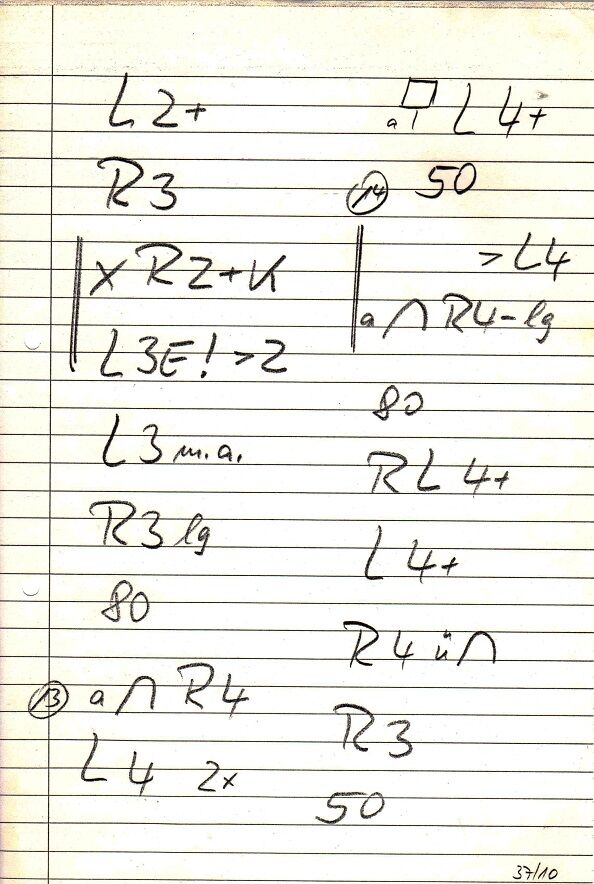 L 2+
R 3
x R 2 + K
L 3 E! > 2
L 3 m.a.
R 3 lg
80
13 a ∩ R 4
L 4 2x
a L 4+
14 50
> L 4
a ∩ R 4 - lg
80
R L 4+
L 4+
R 4 ü ∩
R 3
50
37/10